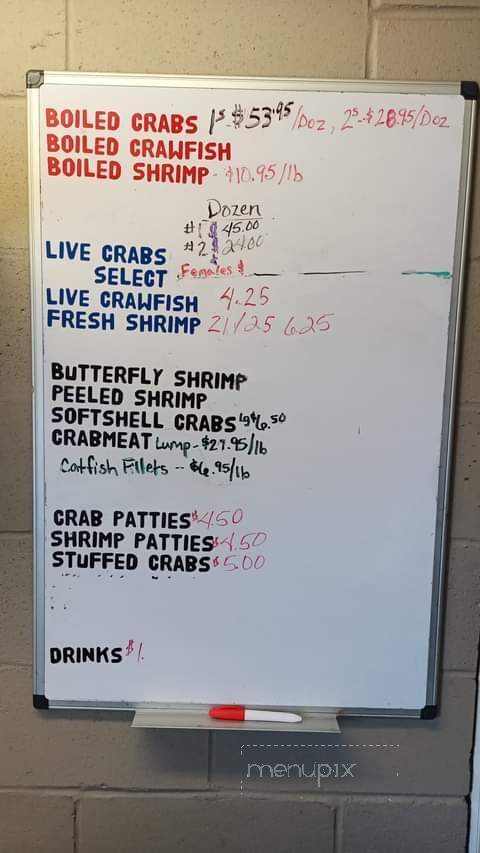 BOILED CRABS 1s-$53.95/Doz, 2s-$28.95/Doz
BOILED CRAWFISH
BOILED SHRIMP - $10.95/lb
Dozen
#1 $ 45.00
#2 $ 24.00
LIVE CRABS
SELECT Females $
LIVE CRAWFISH 4.25
FRESH SHRIMP 21/25 6.25
BUTTERFLY SHRIMP
PEELED SHRIMP
SOFTSHELL CRABS $6.50
CRABMEAT Lump - $27.95/lb
Catfish Fillets -- $6.95/lb
CRAB PATTIES $4.50
SHRIMP PATTIES $4.50
STUFFED CRABS $5.00
DRINKS $1.
menupix